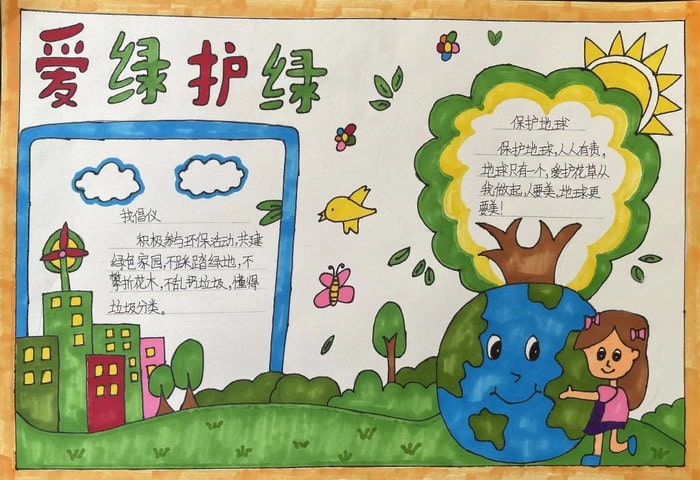 爱绿护绿
我倡仪
积极参与环保活动,共建
绿色家园,不踩踏绿地,不
攀折花木,不乱扔垃圾,懂得
垃圾分类。
保护地球
保护地球,人人有责,
地球只有一个,爱护花草从
我做起,人要美,地球更
要美!